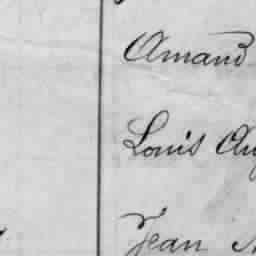 Amand
Louis
Jean